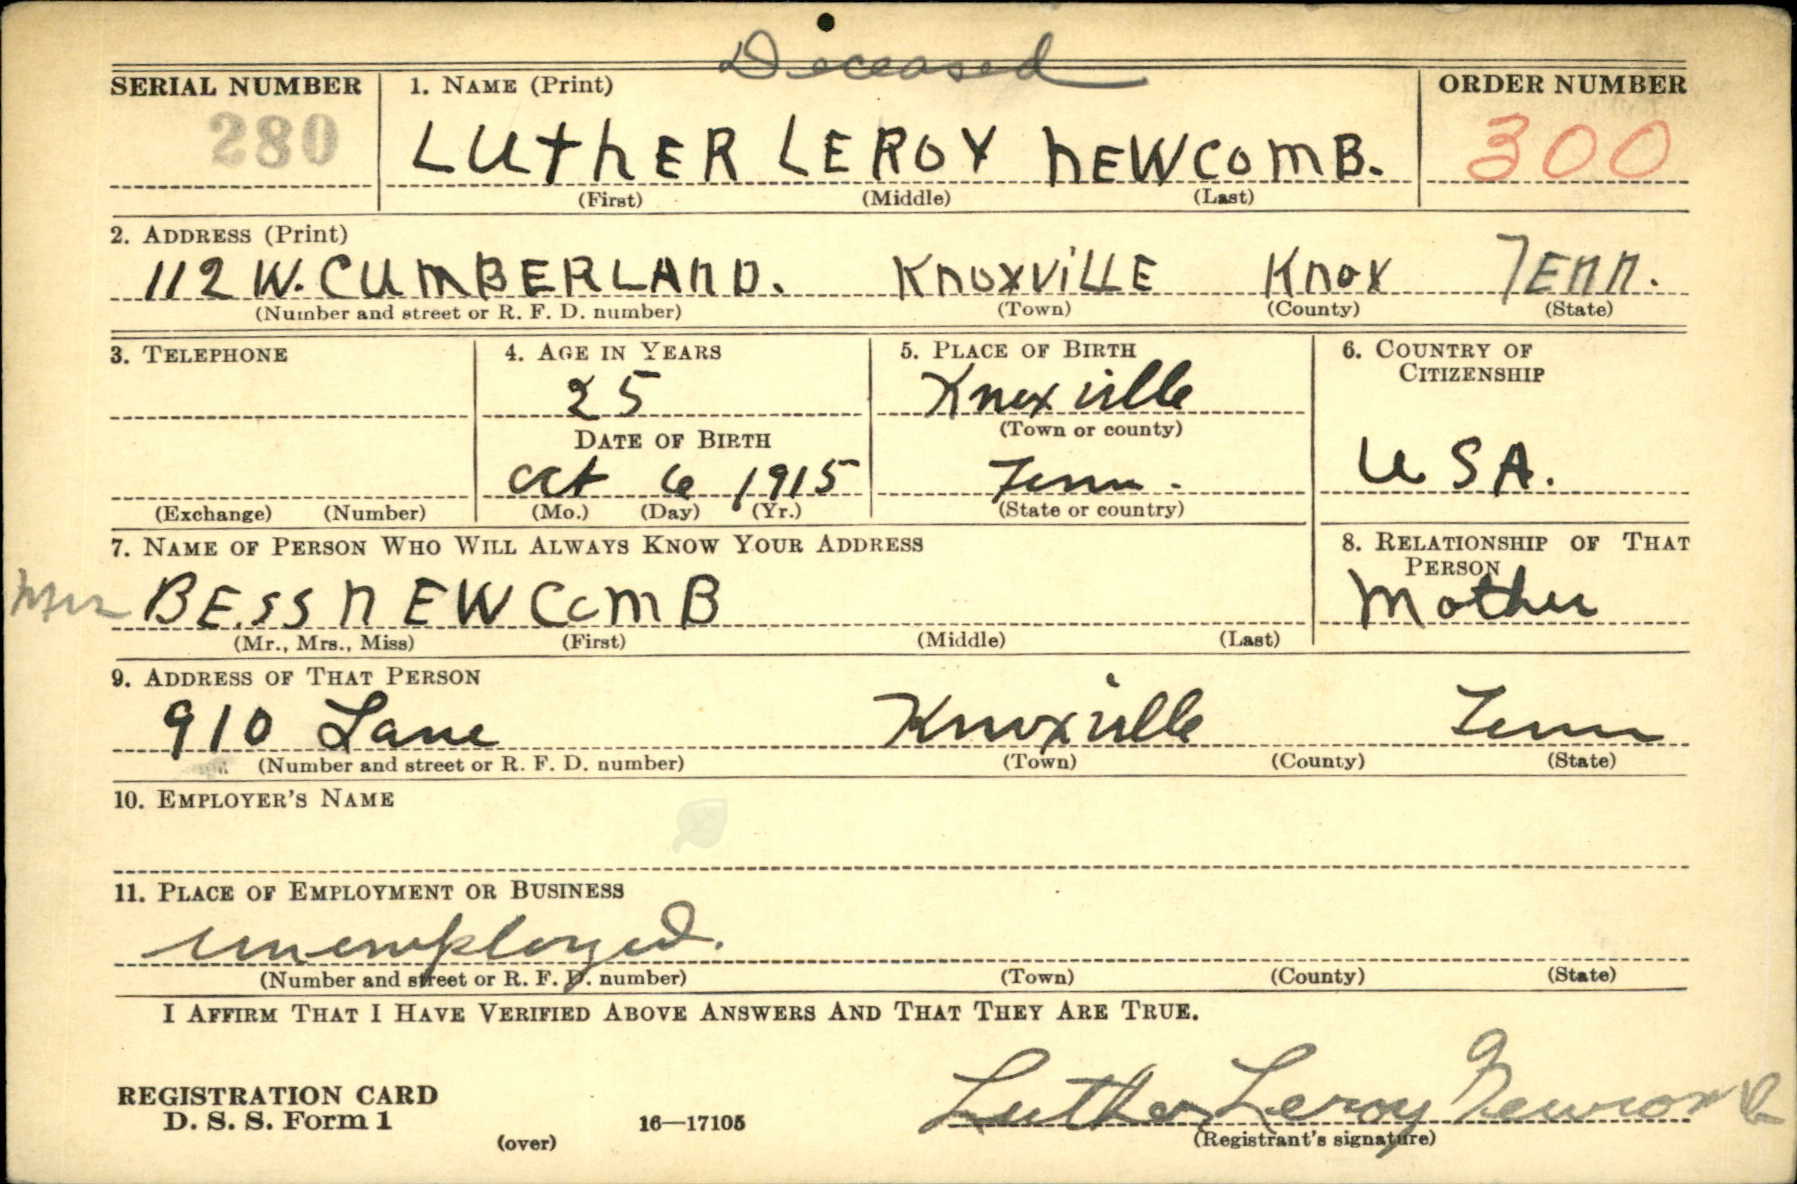 Deceased
SERIAL NUMBER 1. NAME (Print) ORDER NUMBER
280 LUTHER LEROY NEWCOMB. 300
(First) (Middle) (Last)
2. ADDRESS (Print)
112 W. CUMBERLAND. KNOXVILLE KNOX TENN.
(Number and street or R. F. D. number) (Town) (County) (State)
3. TELEPHONE 4. AGE IN YEARS 5. PLACE OF BIRTH 6. COUNTRY OF
CITIZENSHIP
25 Knoxville
DATE OF BIRTH (Town or county)
Oct 6 1915 Tenn. USA.
(Exchange) (Number) (Mo.) (Day) (Yr.) (State or country)
7. NAME OF PERSON WHO WILL ALWAYS KNOW YOUR ADDRESS 8. RELATIONSHIP OF THAT
PERSON
Mrs BESS NEWCOMB Mother
(Mr., Mrs., Miss) (First) (Middle) (Last)
9. ADDRESS OF THAT PERSON
910 Lane Knoxville Tenn
(Number and street or R. F. D. number) (Town) (County) (State)
10. EMPLOYER'S NAME
11. PLACE OF EMPLOYMENT OR BUSINESS
unemployed.
(Number and street or R. F. D. number) (Town) (County) (State)
I AFFIRM THAT I HAVE VERIFIED ABOVE ANSWERS AND THAT THEY ARE TRUE.
REGISTRATION CARD
D. S. S. Form 1 16—17105 Luther Leroy Newcomb
(over) (Registrant's signature)